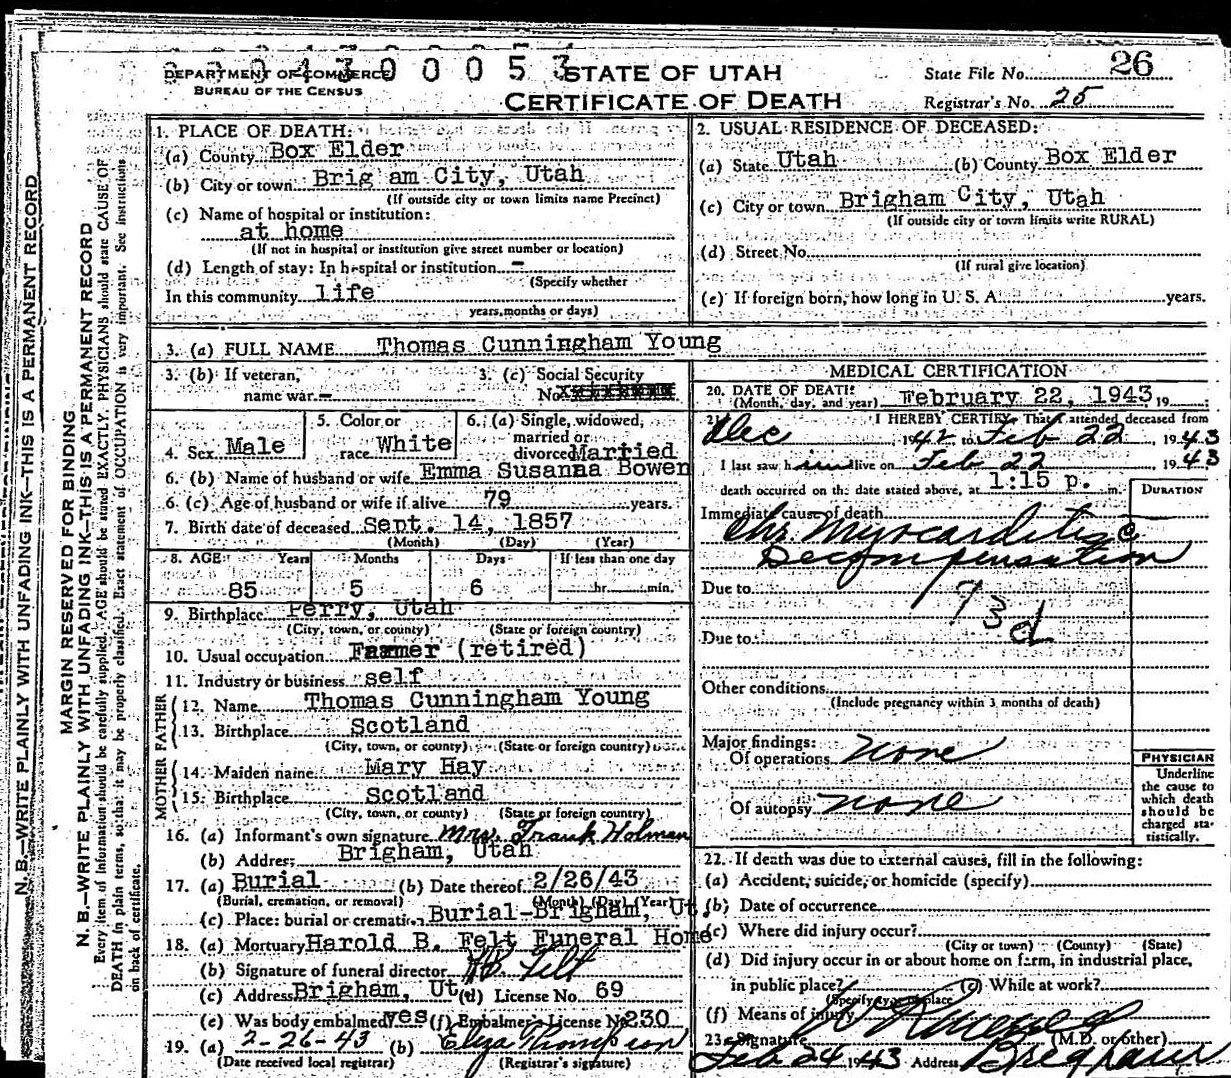 0 0 4 3 0 0 0 5 3
DEPARTMENT OF COMMERCE
BUREAU OF THE CENSUS
STATE OF UTAH
CERTIFICATE OF DEATH
State File No. 26
Registrar's No. 25
N. B.—WRITE PLAINLY WITH UNFADING INK—THIS IS A PERMANENT RECORD
MARGIN RESERVED FOR BINDING
N. B.—WRITE PLAINLY WITH UNFADING INK—THIS IS A PERMANENT RECORD
Every item of information should be carefully supplied. AGE should be stated EXACTLY. PHYSICIANS should state CAUSE OF
DEATH in plain terms, so that it may be properly classified. Exact statement of OCCUPATION is very important. See instructions
on back of certificate.
1. PLACE OF DEATH:
(a) County Box Elder
(b) City or town Brig am City, Utah
(If outside city or town limits name Precinct)
(c) Name of hospital or institution:
at home
(If not in hospital or institution give street number or location)
(d) Length of stay: In hospital or institution -
(Specify whether
In this community life
years, months or days)
2. USUAL RESIDENCE OF DECEASED:
(a) State Utah (b) County Box Elder
(c) City or town Brigham City, Utah
(If outside city or town limits write RURAL)
(d) Street No.
(If rural give location)
(e) If foreign born, how long in U. S. A. years.
3. (a) FULL NAME Thomas Cunningham Young
3. (b) If veteran, 3. (c) Social Security
name war - No. xxxxxxxx
4. Sex Male
5. Color or
race White
6. (a) Single, widowed,
married or
divorced Married
6. (b) Name of husband or wife Emma Susanna Bowen
6. (c) Age of husband or wife if alive 79 years.
7. Birth date of deceased Sept. 14, 1857
(Month) (Day) (Year)
8. AGE: Years Months Days If less than one day
85 5 6 hr. min.
9. Birthplace Perry, Utah
(City, town, or county) (State or foreign country)
10. Usual occupation Farmer (retired)
11. Industry or business self
FATHER
12. Name Thomas Cunningham Young
13. Birthplace Scotland
(City, town, or county) (State or foreign country)
MOTHER
14. Maiden name Mary Hay
15. Birthplace Scotland
(City, town, or county) (State or foreign country)
16. (a) Informant's own signature Mrs. Frank Holman
(b) Address Brigham, Utah
17. (a) Burial (b) Date thereof 2/26/43
(Burial, cremation, or removal) (Month) (Day) (Year)
(c) Place: burial or cremation Burial-Brigham, Ut.
18. (a) Mortuary Harold B. Felt Funeral Home
(b) Signature of funeral director HB Felt
(c) Address Brigham, Ut. (d) License No. 69
(e) Was body embalmed yes (f) Embalmer's License No. 230
19. (a) 2-26-43 (b) Eliza Thompson
(Date received local registrar) (Registrar's signature)
MEDICAL CERTIFICATION
20. DATE OF DEATH:
(Month, day, and year) February 22, 1943, 19
21. I HEREBY CERTIFY That I attended deceased from
Dec 1942 to Feb 22 1943
I last saw him alive on Feb 22 1943
death occurred on the date stated above, at 1:15 p. m.
DURATION
Immediate cause of death
Chr. Myocarditis c
Decompensation
Due to
93d
Due to
Other conditions
(Include pregnancy within 3 months of death)
Major findings:
Of operations none
Of autopsy none
PHYSICIAN
Underline
the cause to
which death
should be
charged sta-
tistically.
22. If death was due to external causes, fill in the following:
(a) Accident, suicide, or homicide (specify)
(b) Date of occurrence
(c) Where did injury occur?
(City or town) (County) (State)
(d) Did injury occur in or about home on farm, in industrial place,
in public place? (e) While at work?
(Specify type of place)
(f) Means of injury
23. Signature (M.D. or other)
Feb 24 1943 Address Brigham